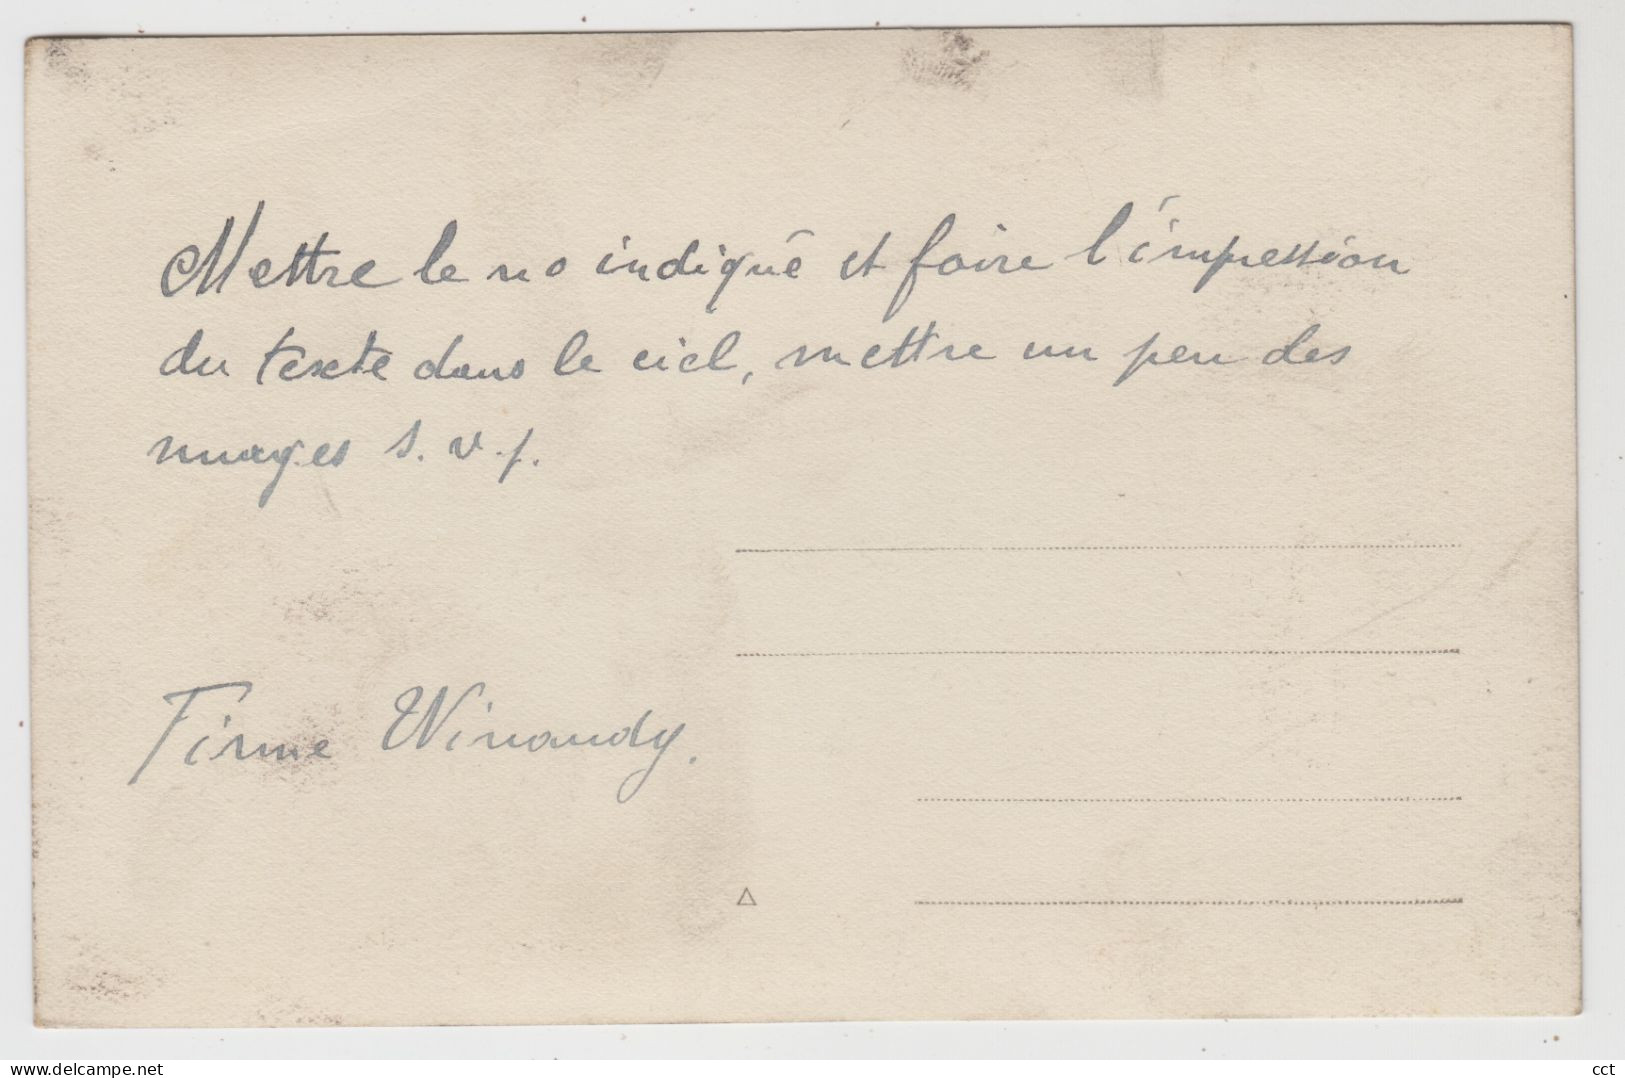 Mettre le no indiqué et faire l'impression
du texte dans le ciel, mettre un peu des
nuages s.v.p.
Firme Winandy.
www.delcampe.net
cct